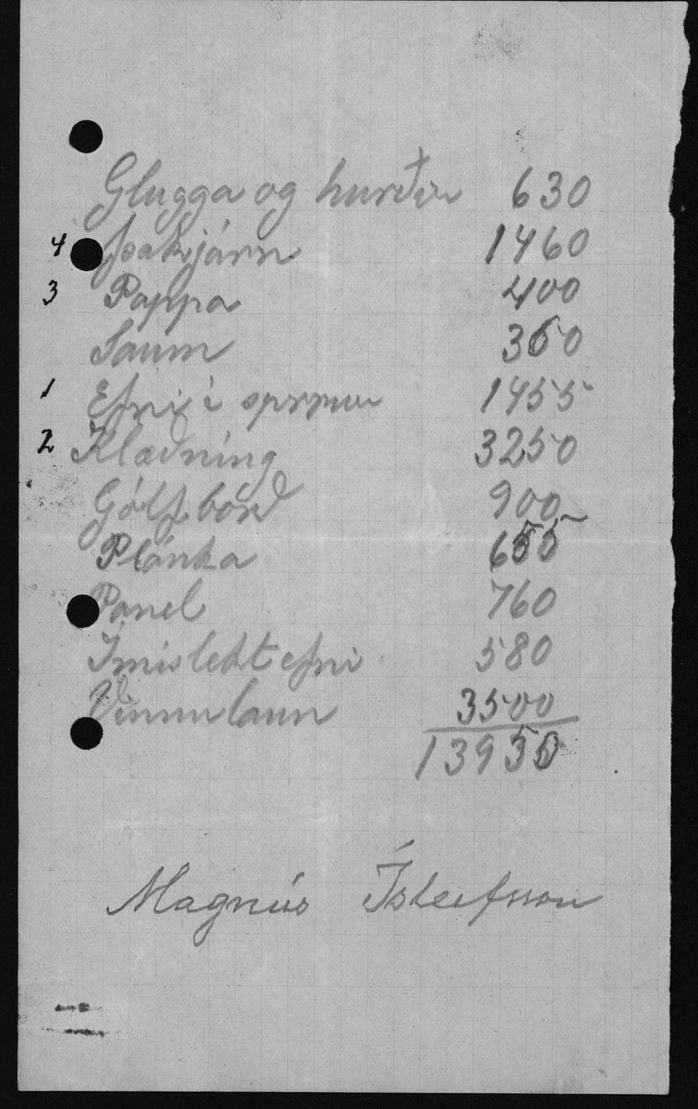 Glugga og hurðir 630
4 Þakjárn 1460
3 Pappa 400
Saum 360
1 Efni í sperrur 1455
2 Klæðning 3250
Gólfborð 900
Plánka 655
Panel 760
Ímislekt efni 580
Vinnulaun 3500
13950
Magnús Ísleifsson